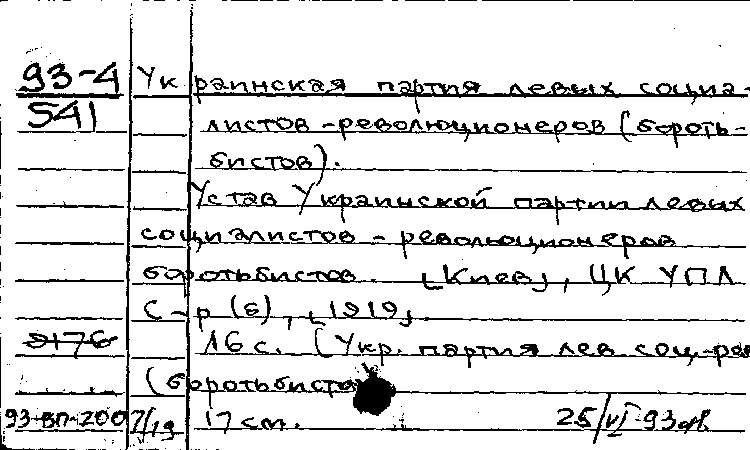 93-4 Украинская партия левых социа-
541 листов-революционеров (бороть-
бистов).
Устав Украинской партии левых
социалистов-революционеров
боротьбистов. [Киев], ЦК УПЛ
С-р (б), [1919].
16 с. (Укр. партия лев соц-рев
(боротьбистов
93-ВП-2007/19 17 см. 25/VI-93